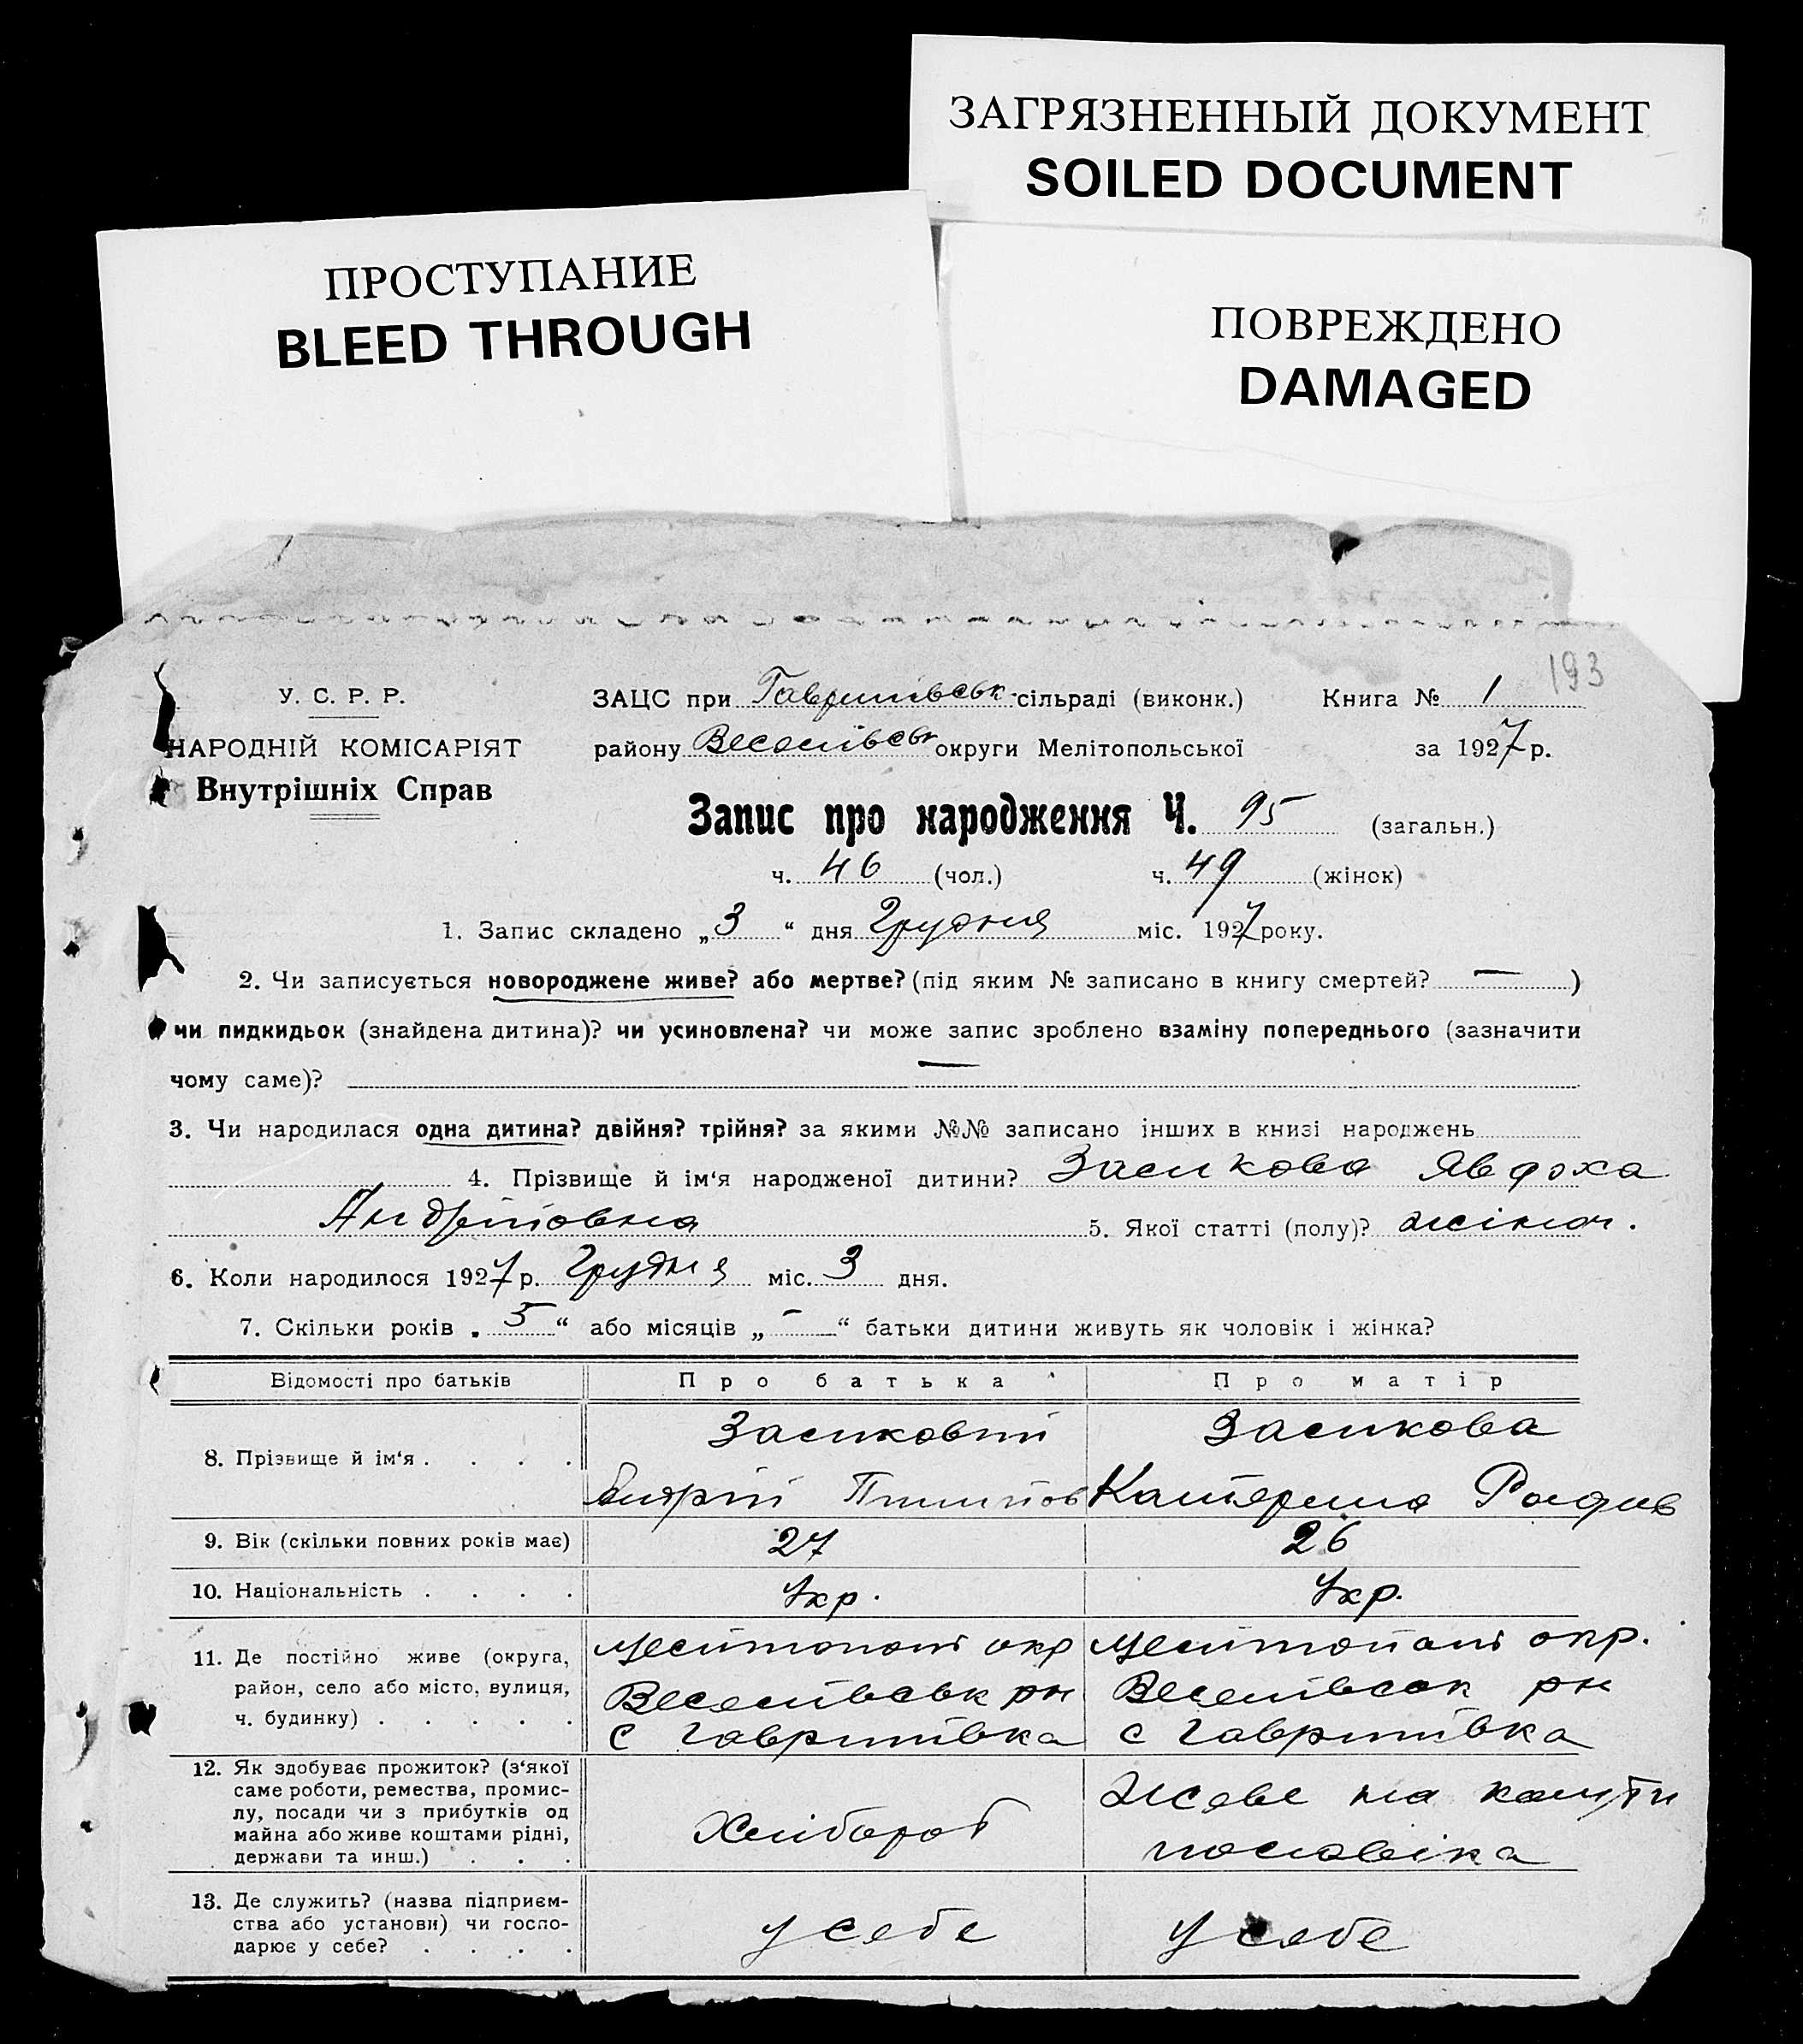 ЗАГРЯЗНЕННЫЙ ДОКУМЕНТ
SOILED DOCUMENT
ПРОСТУПАНИЕ
BLEED THROUGH
ПОВРЕЖДЕНО
DAMAGED
193
У. С. Р. Р.
НАРОДНІЙ КОМІСАРІЯТ
Внутрішніх Справ
ЗАЦС при Гаврилівськ. сільраді (виконк.) Книга № 1
району Веселівськ округи Мелітопольської за 1927 р.
Запис про народження Ч. 95 (загальн.)
ч. 46 (чол.) ч. 49 (жінок)
1. Запис складено „3“ дня Грудня міс. 1927 року.
2. Чи записується новороджене живе? або мертве? (під яким № записано в книгу смертей? — )
чи пидкидьок (знайдена дитина)? чи усиновлена? чи може запис зроблено взаміну попереднього (зазначити
чому саме)? —
3. Чи народилася одна дитина? двійня? трійня? за якими №№ записано інших в книзі народжень
4. Прізвище й ім‘я народженої дитини? Засикова Явдоха
Андріївна 5. Якої статті (полу)? жіноч.
6. Коли народилося 1927 р. Грудня міс. 3 дня.
7. Скільки років „5“ або місяців „-“ батьки дитини живуть як чоловік і жінка?
Відомості про батьків Про батька Про матір
8. Прізвище й ім‘я . . . . Засиковий Засикова
Андрій Пилипов Катерина
9. Вік (скільки повних років має) 27 26
10. Національність . . . . Укр. Укр.
11. Де постійно живе (округа, Мелітополь окр Мелітополь окр.
район, село або місто, вулиця, Веселівськ рн Веселівськ рн
ч. будинку) . . . . . с Гаврилівка с Гаврилівка
12. Як здобуває прожиток? (з‘якої
саме роботи, ремества, промис- Живе на кошти
лу, посади чи з прибутків од Хлібороб
майна або живе коштами рідні, чоловіка
держави та инш.) . . .
13. Де служить? (назва підприєм-
ства або установи) чи госпо- У себе У себе
дарює у себе? . . . .